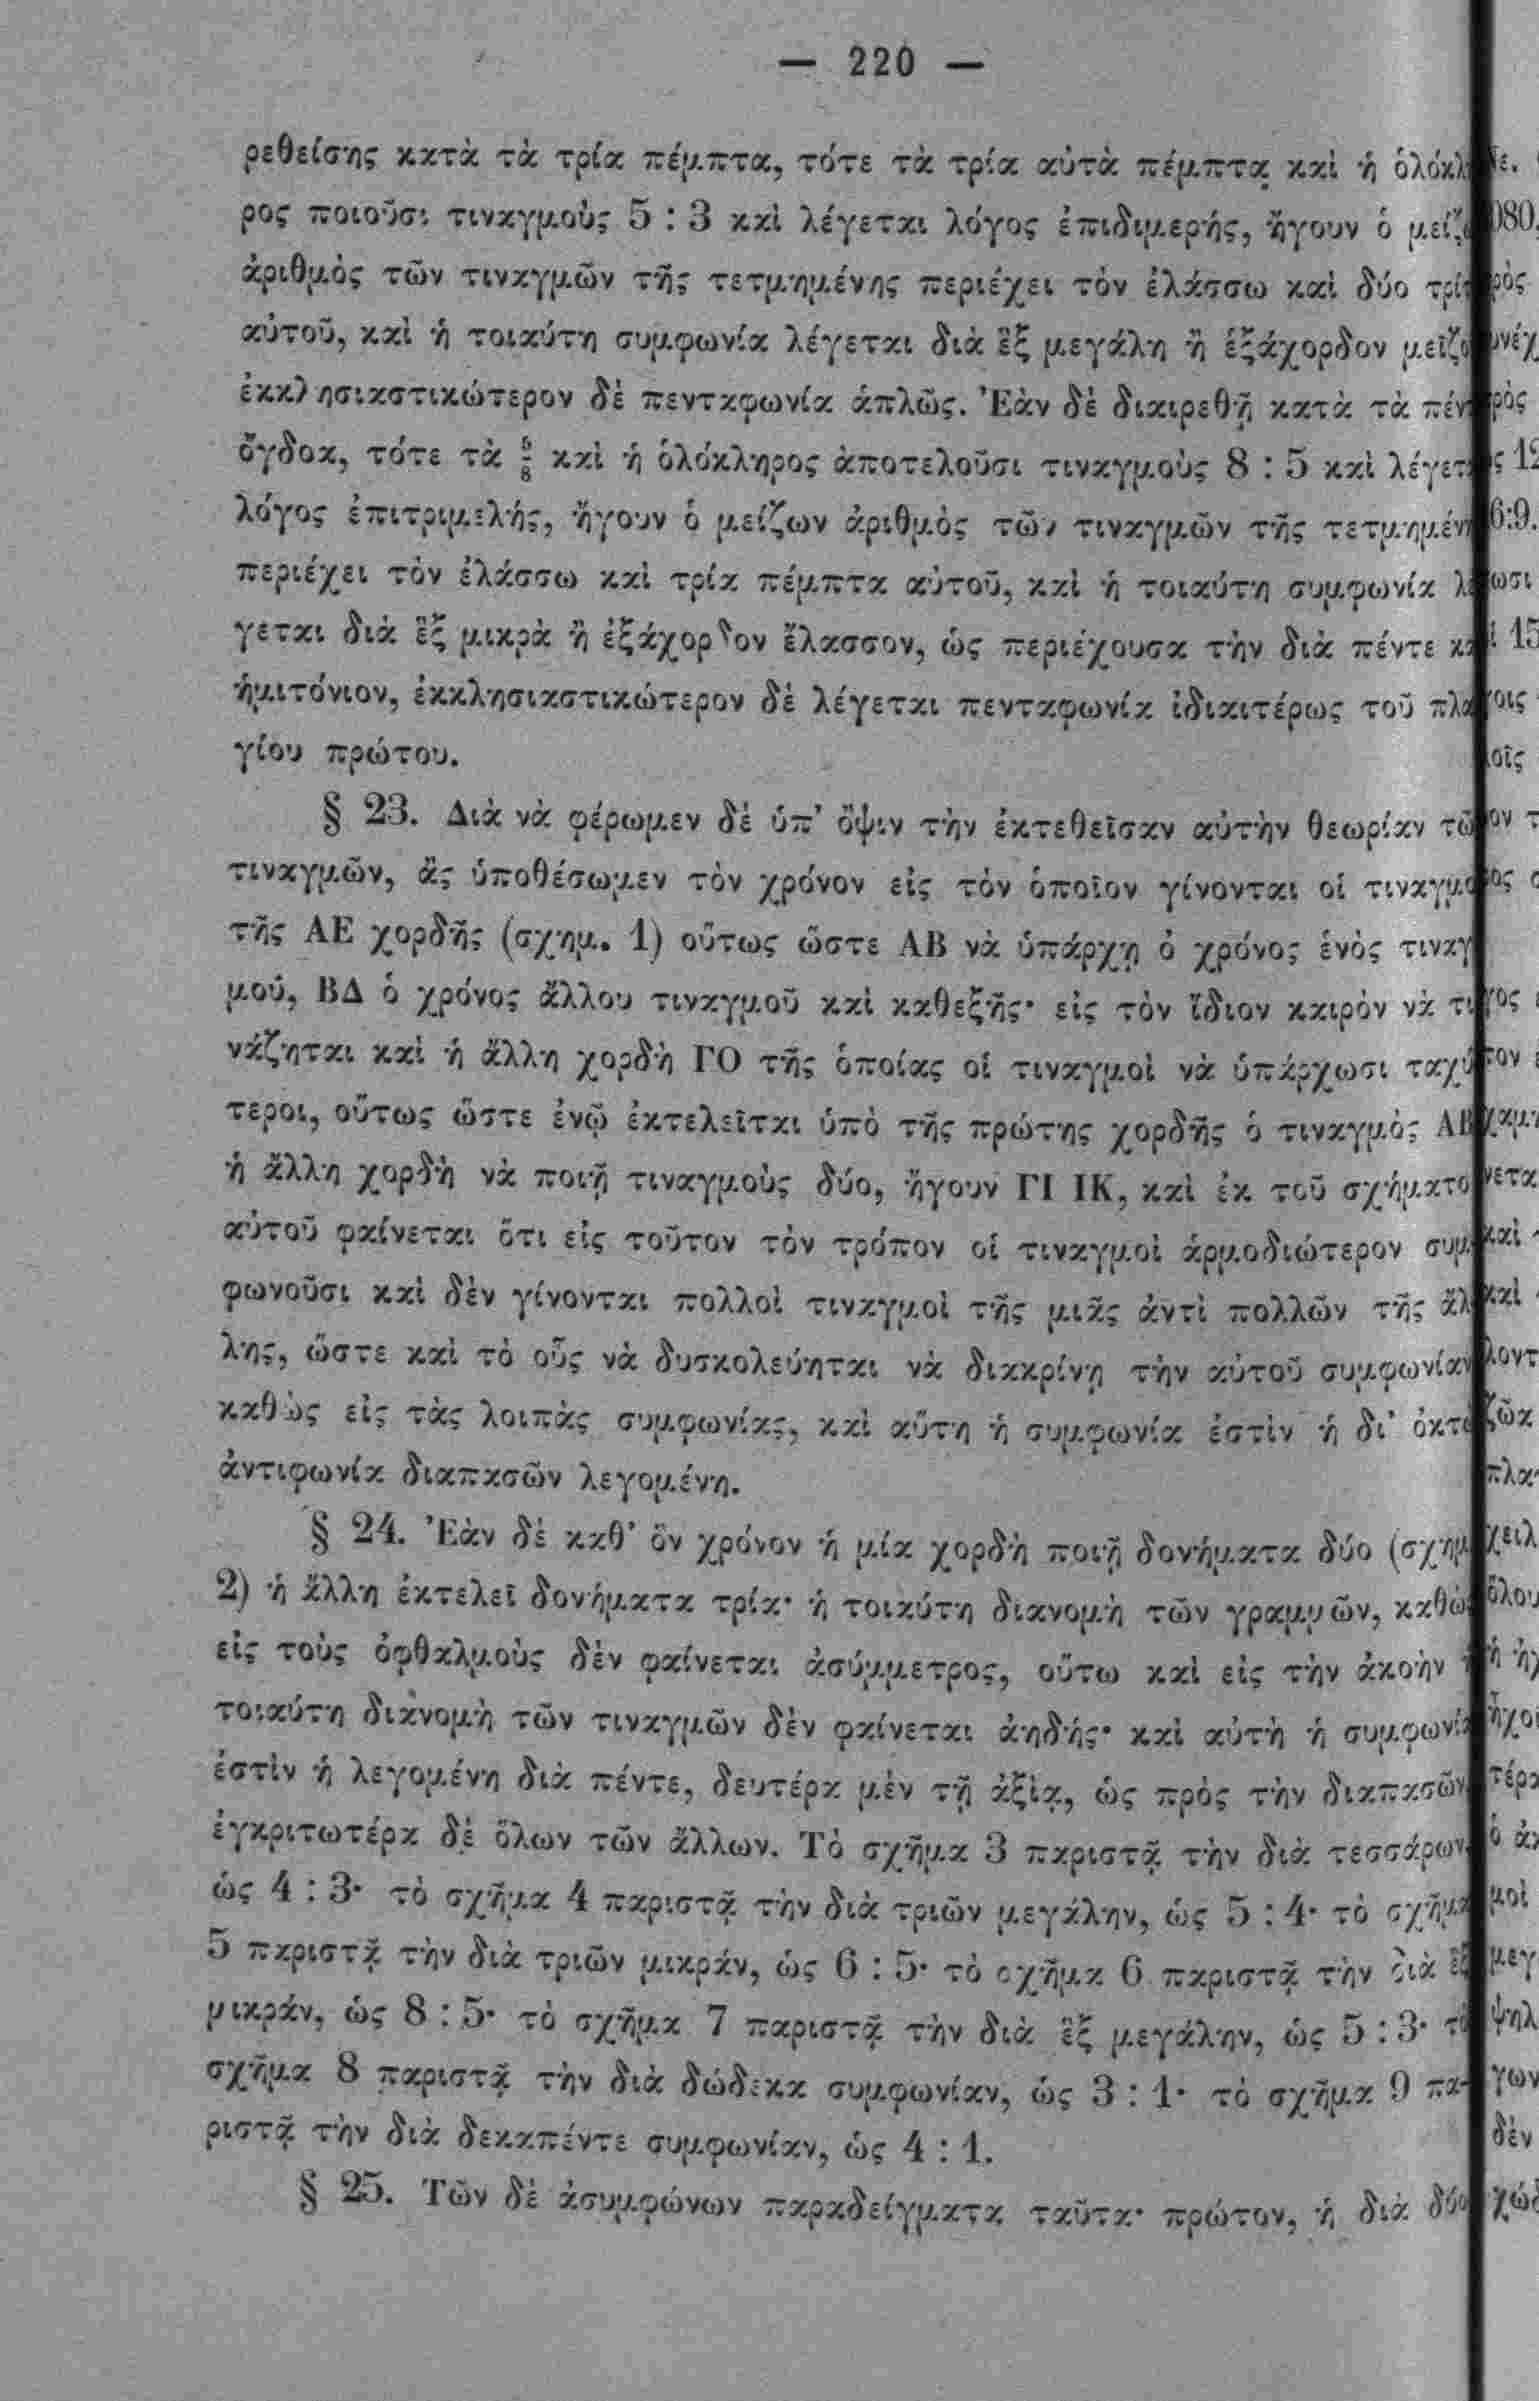 — 220 —
ρεθείσης κατὰ τὰ τρία πέμπτα, τότε τὰ τρία αὐτὰ πέμπτα καὶ ἡ ὁλόκλ
ρος ποιοῦσι τιναγμοὺς 5 : 3 καὶ λέγεται λόγος ἐπιδιμερής, ἤγουν ὁ μείζ
ἀριθμὸς τῶν τιναγμῶν τῆς τετμημένης περιέχει τὸν ἐλάσσω καὶ δύο τρίτ
αὐτοῦ, καὶ ἡ τοιαύτη συμφωνία λέγεται διὰ ἓξ μεγάλη ἢ ἑξάχορδον μεῖζο
ἐκκλησιαστικώτερον δὲ πενταφωνία ἁπλῶς. Ἐὰν δὲ διαιρεθῇ κατὰ τὰ πέν
ὄγδοα, τότε τὰ 5/8 καὶ ἡ ὁλόκληρος ἀποτελοῦσι τιναγμοὺς 8 : 5 καὶ λέγετ
λόγος ἐπιτριμελής, ἤγουν ὁ μείζων ἀριθμὸς τῶν τιναγμῶν τῆς τετμημέν
περιέχει τὸν ἐλάσσω καὶ τρία πέμπτα αὐτοῦ, καὶ ἡ τοιαύτη συμφωνία λέ
γεται διὰ ἓξ μικρὰ ἢ ἑξάχορδον ἔλασσον, ὡς περιέχουσα τὴν διὰ πέντε κα
ἡμιτόνιον, ἐκκλησιαστικώτερον δὲ λέγεται πενταφωνία ἰδιαιτέρως τοῦ πλα
γίου πρώτου.
§ 23. Διὰ νὰ φέρωμεν δὲ ὑπ' ὄψιν τὴν ἐκτεθεῖσαν αὐτὴν θεωρίαν τῶ
τιναγμῶν, ἂς ὑποθέσωμεν τὸν χρόνον εἰς τὸν ὁποῖον γίνονται οἱ τιναγμο
τῆς ΑΕ χορδῆς (σχημ. 1) οὕτως ὥστε ΑΒ νὰ ὑπάρχῃ ὁ χρόνος ἑνὸς τιναγ
μοῦ, ΒΔ ὁ χρόνος ἄλλου τιναγμοῦ καὶ καθεξῆς· εἰς τὸν ἴδιον καιρὸν νὰ τι
νάζηται καὶ ἡ ἄλλη χορδὴ ΓΟ τῆς ὁποίας οἱ τιναγμοὶ νὰ ὑπάρχωσι ταχύ
τεροι, οὕτως ὥστε ἐνῷ ἐκτελεῖται ὑπὸ τῆς πρώτης χορδῆς ὁ τιναγμὸς ΑΒ
ἡ ἄλλη χορδὴ νὰ ποιῇ τιναγμοὺς δύο, ἤγουν ΓΙ ΙΚ, καὶ ἐκ τοῦ σχήματο
αὐτοῦ φαίνεται ὅτι εἰς τοῦτον τὸν τρόπον οἱ τιναγμοὶ ἁρμοδιώτερον συμ-
φωνοῦσι καὶ δὲν γίνονται πολλοὶ τιναγμοὶ τῆς μιᾶς ἀντὶ πολλῶν τῆς ἄλ
λης, ὥστε καὶ τὸ οὖς νὰ δυσκολεύηται νὰ διακρίνῃ τὴν αὐτοῦ συμφωνίαν
καθὼς εἰς τὰς λοιπὰς συμφωνίας, καὶ αὕτη ἡ συμφωνία ἐστὶν ἡ δι' ὀκτὼ
ἀντιφωνία διαπασῶν λεγομένη.
§ 24. Ἐὰν δὲ καθ' ὃν χρόνον ἡ μία χορδὴ ποιῇ δονήματα δύο (σχημ
2) ἡ ἄλλη ἐκτελεῖ δονήματα τρία· ἡ τοιαύτη διανομὴ τῶν γραμμῶν, καθὼ
εἰς τοὺς ὀφθαλμοὺς δὲν φαίνεται ἀσύμμετρος, οὕτω καὶ εἰς τὴν ἀκοὴν ἡ
τοιαύτη διανομὴ τῶν τιναγμῶν δὲν φαίνεται ἀηδής· καὶ αὐτὴ ἡ συμφωνία
ἐστὶν ἡ λεγομένη διὰ πέντε, δευτέρα μὲν τῇ ἀξίᾳ, ὡς πρὸς τὴν διαπασῶν,
ἐγκριτωτέρα δὲ ὅλων τῶν ἄλλων. Τὸ σχῆμα 3 παριστᾷ τὴν διὰ τεσσάρων,
ὡς 4 : 3· τὸ σχῆμα 4 παριστᾷ τὴν διὰ τριῶν μεγάλην, ὡς 5 : 4· τὸ σχῆμα
5 παριστᾷ τὴν διὰ τριῶν μικράν, ὡς 6 : 5· τὸ σχῆμα 6 παριστᾷ τὴν διὰ ἓξ
μικράν, ὡς 8 : 5· τὸ σχῆμα 7 παριστᾷ τὴν διὰ ἓξ μεγάλην, ὡς 5 : 3· τὸ
σχῆμα 8 παριστᾷ τὴν διὰ δώδεκα συμφωνίαν, ὡς 3 : 1· τὸ σχῆμα 9 πα-
ριστᾷ τὴν διὰ δεκαπέντε συμφωνίαν, ὡς 4 : 1.
§ 25. Τῶν δὲ ἀσυμφώνων παραδείγματα ταῦτα· πρώτον, ἡ διὰ δύο